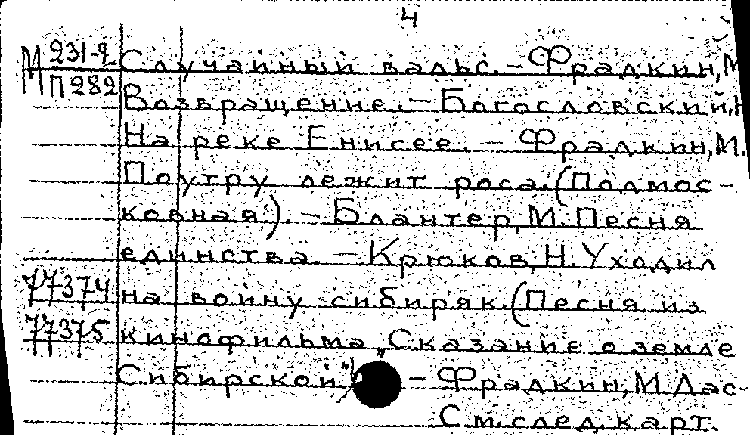 4
М 231-2 Случайный вальс. – Фрадкин, М
П 282 Возвращение. – Богословский, Н
На реке Енисее. – Фрадкин, М.
Поутру лежит роса. (Подмос-
ковная). – Блантер, М. Песня
единства. – Крюков, Н. Уходил
77374 на войну сибиряк. (Песня из
77375 кинофильма „Сказание о земле
Сибирской") – Фрадкин, М. Лас-
См. след. карт.